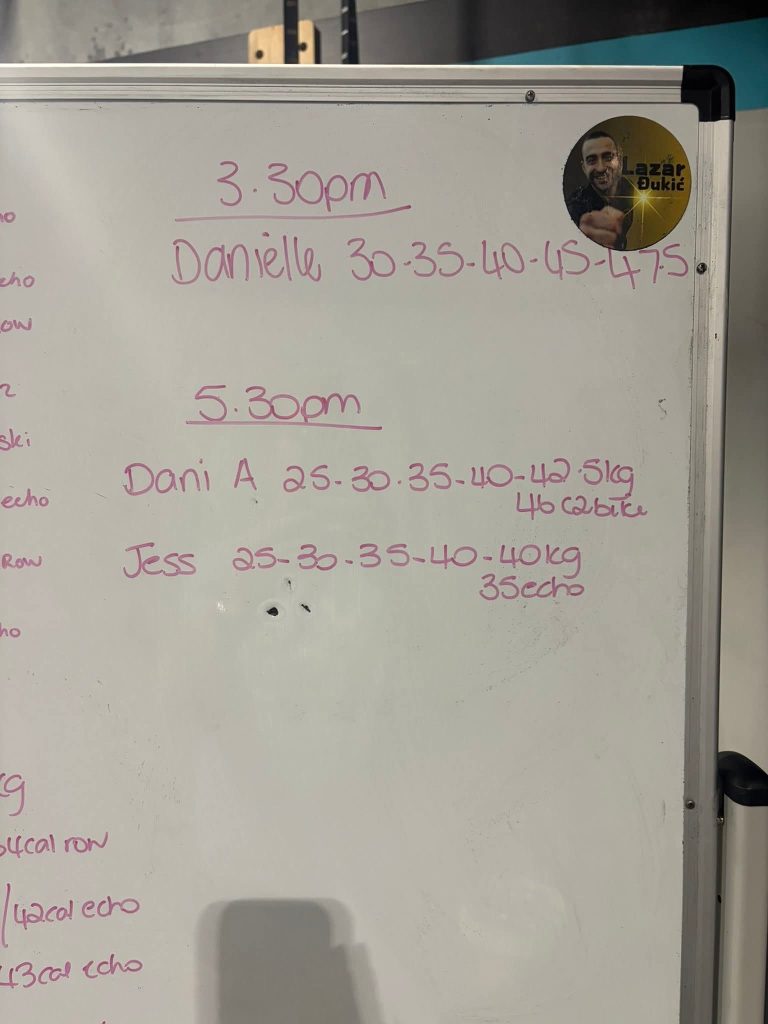 3.30pm
Lazar
Đukić
Danielle 30-35-40-45-47.5
5.30pm
Dani A 25-30.35-40-42.5kg
46 C2bike
Jess 25-30-35-40-40kg
35echo
echo
ski
echo
Row
cal row
/42cal echo
43cal echo